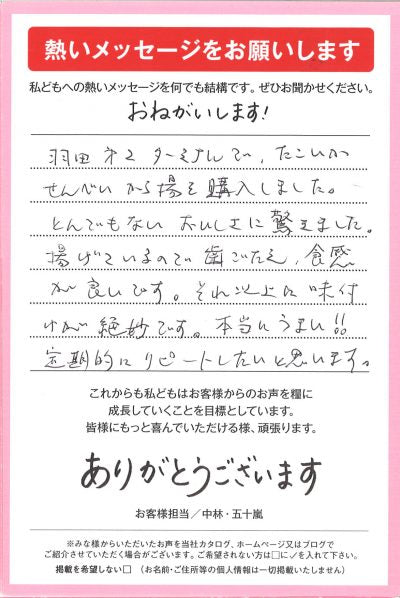 熱いメッセージをお願いします
私どもへの熱いメッセージを何でも結構です。ぜひお聞かせください。
おねがいします!
羽田第2ターミナルで、たこいか
せんべい から揚を購入しました。
とんでもない おいしさに驚きました。
揚げているので 歯ごたえ、食感
が良いです。それ以上に味付
けが絶妙です。本当にうまい!!
定期的にリピートしたいと思います。
これからも私どもはお客様からのお声を糧に
成長していくことを目標としています。
皆様にもっと喜んでいただける様、頑張ります。
ありがとうございます
お客様担当/中林・五十嵐
※みな様からいただいたお声を当社カタログ、ホームページ又はブログで
ご紹介させていただく場合がございます。ご希望されない方は□に✓を入れて下さい。
掲載を希望しない□ (お名前・ご住所等の個人情報は一切掲載いたしません)